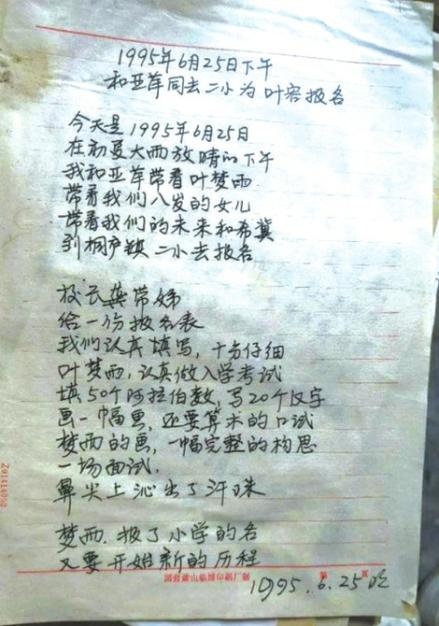 1995年6月25日下午
和亚萍同去二小为叶容报名
今天是1995年6月25日
在初夏大雨放晴的下午
我和亚萍带着叶梦西
带着我们八岁的女儿
带着我们的未来和希冀
到桐庐镇二小去报名
校长龚带娣
给一份报名表
我们认真填写，十分仔细
叶梦西，认真做入学考试
填50个阿拉伯数，写20个汉字
画一幅画，还要算术的口试
梦西的画，一幅完整的构思
一场面试，
鼻尖上沁出了汗珠
梦西，报了小学的名
又要开始新的历程
国营萧山临浦印刷厂制
第 页
1995.6.25晚